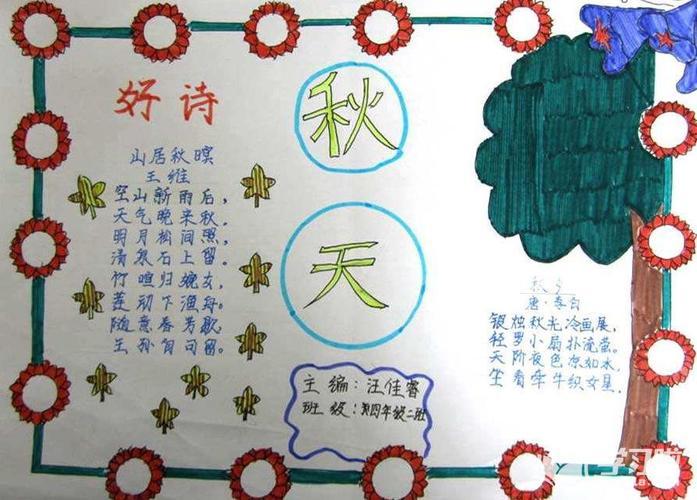 好诗
山居秋暝
王维
空山新雨后，
天气晚来秋。
明月松间照，
清泉石上留。
竹喧归婉女，
莲动下渔舟。
随意春芳歇，
王孙自可留。
秋
天
主编：汪佳睿
班级：第四年级二班
秋夕
唐·李白
银烛秋光冷画展，
轻罗小扇扑流萤。
天阶夜色凉如水，
坐看牵牛织女星.
学习啦